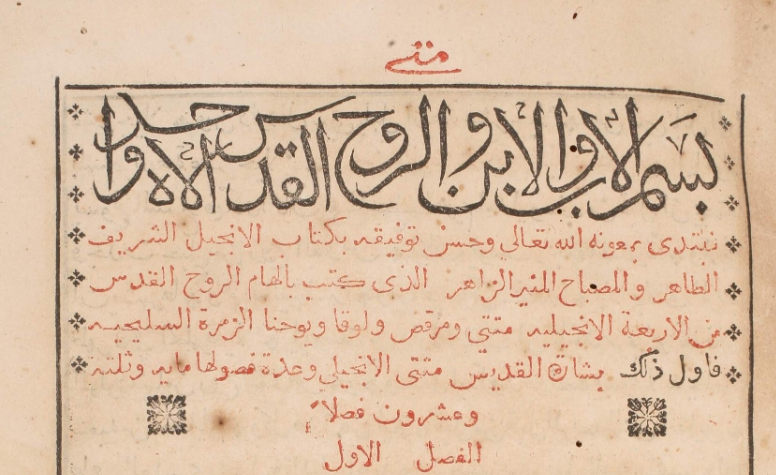 متى
بسم الاب والابن والروح القدس الاه واحد
نبتدى بمعونه الله تعالى وحسن توفيقه بكتاب الانجيل الشريف
الطاهر والمصباح المنير الزاهر الذى كتب بالهام الروح القدس
من الاربعة الانجيليه متتي ومرقص ولوقا ويوحنا الزمرة السليحيه
فاول ذلك بشاة القديس متتى الانجيلي وعدة فصولها مايه وثلثه
وعشرون فصلاً
الفصل الاول